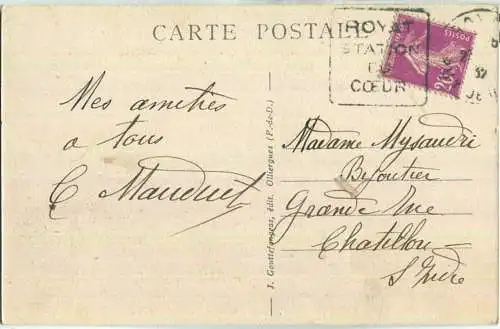 CARTE POSTALE
ROYAT
STATION
DU
CŒUR
POSTES
20c
32
Mes amitiés
a tous
C Mauduit
J. Gouttefangeas, édit. Olliergues (P.-de-D.)
Madame Mysaudri
Bijoutier
Grande Rue
Chatillon
s Indre